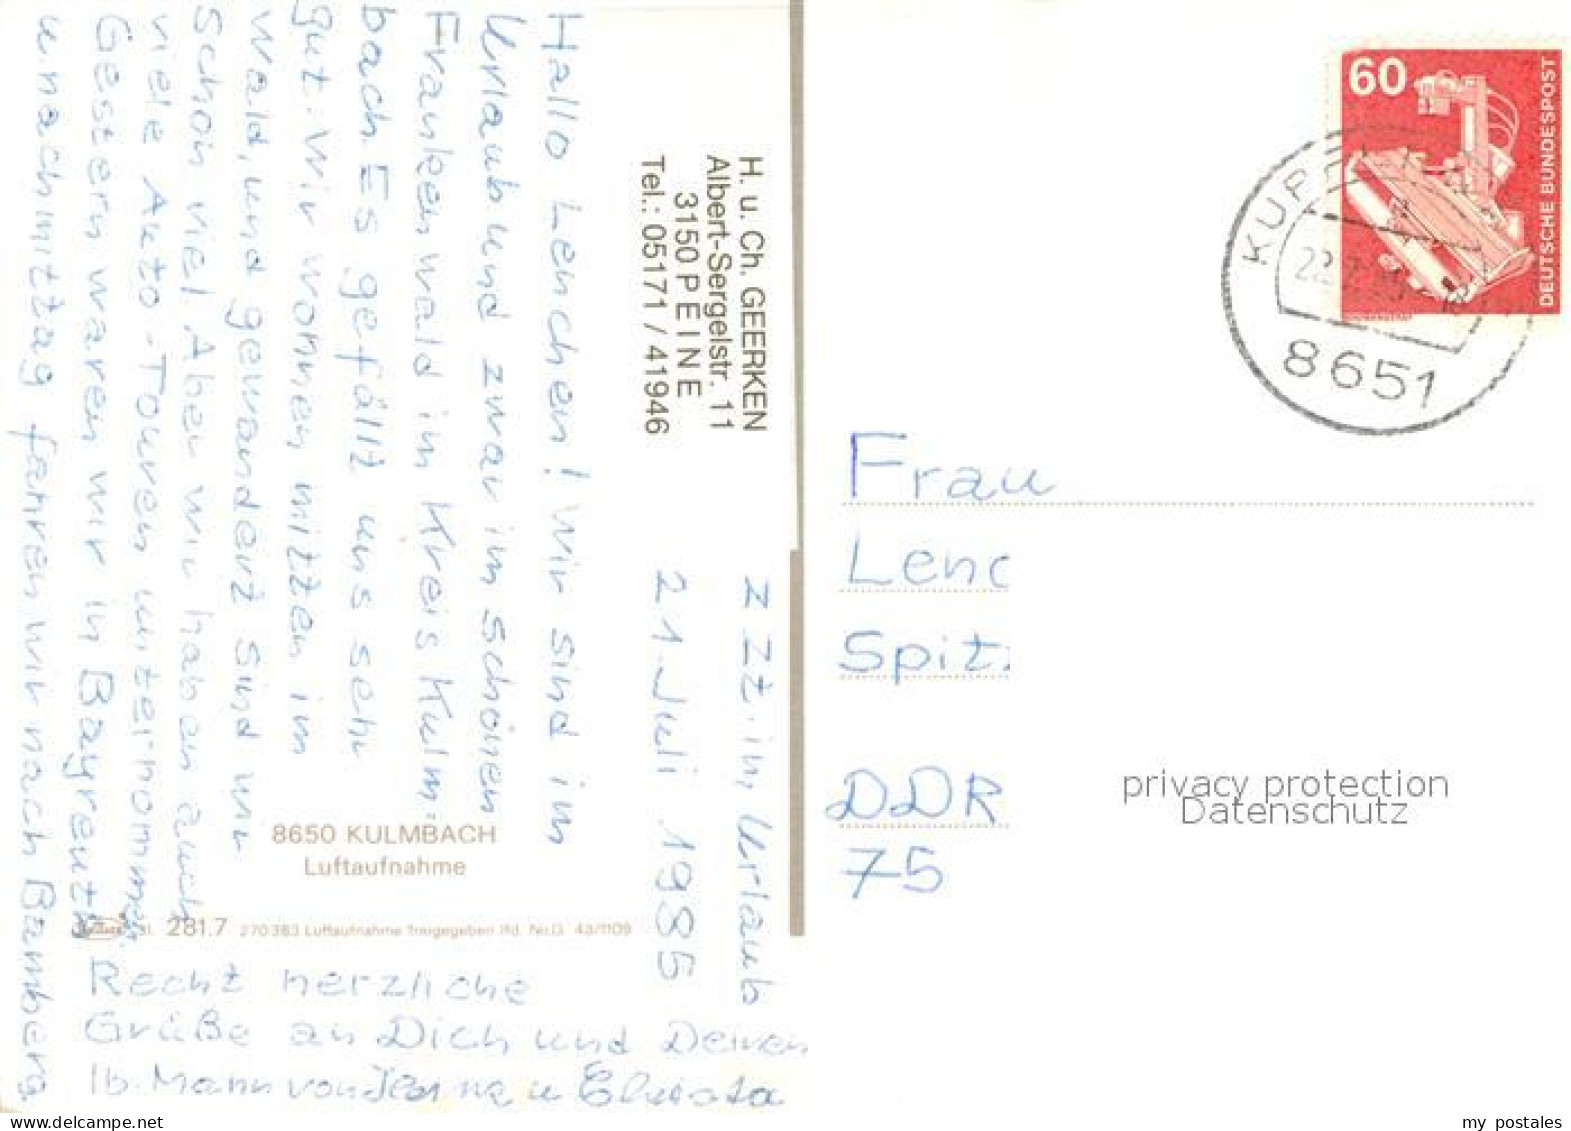 H. u. Ch. GEERKEN
Albert-Sergelstr. 11
3150 PEINE
Tel.: 05171 / 41946
z Zt. im Urlaub
21 Juli 1985
Hallo Lenchen! Wir sind im
Urlaub und zwar im schönen
Frankenwald im Kreis Kulm-
bach. Es gefällt uns sehr
gut. Wir wohnen mitten im
Wald, und gewandert sind wir
schon viel. Aber wir haben auch
viele Auto-Touren unternommen.
Gestern waren wir in Bayreuth
u. nachmittag fahren wir nach Bamberg
Recht herzliche
Grüße an Dich und Deinen
lb. Mann von
8650 KULMBACH
Luftaufnahme
281.7 270383 Luftaufnahme freigegeben lfd. Nr.G 43/1109
60
DEUTSCHE BUNDESPOST
8651
Frau
Lenc
Spitz
DDR
75
privacy protection
Datenschutz
my postales